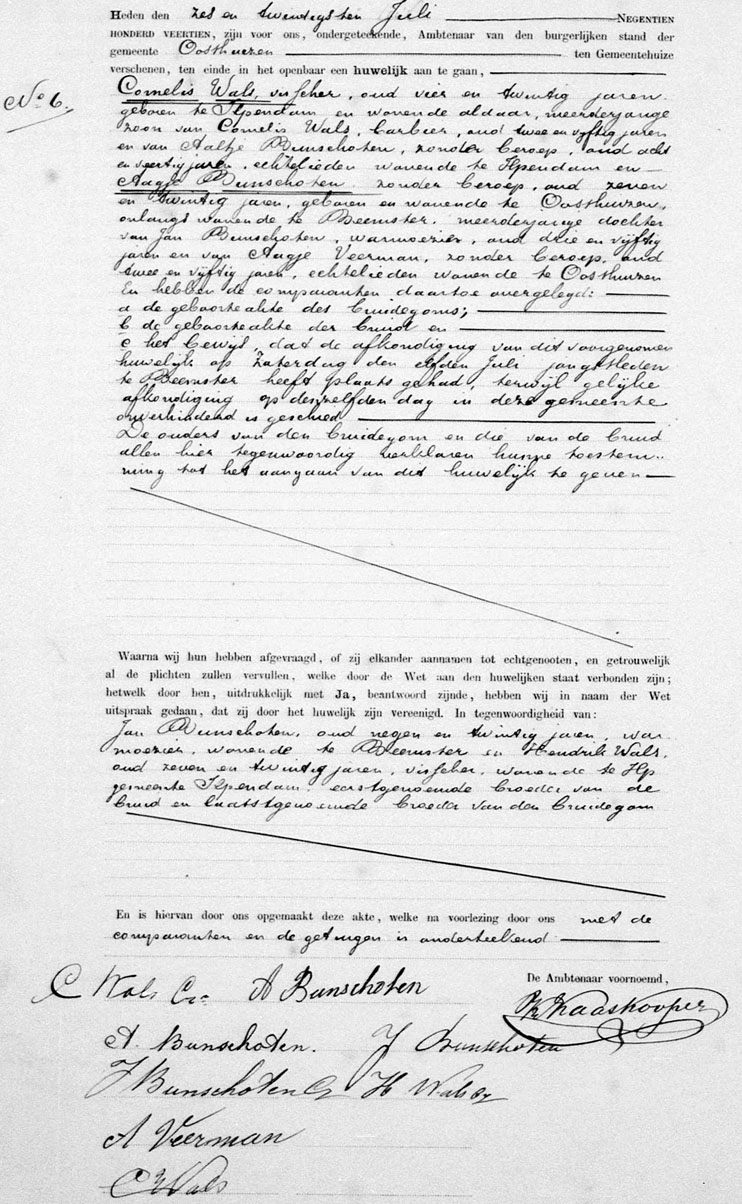 Heden den zes en twintigsten Juli NEGENTIEN
HONDERD VEERTIEN, zijn voor ons, ondergeteekende, Ambtenaar van den burgerlijken stand der
gemeente Oosthuizen ten Gemeentehuize
verschenen, ten einde in het openbaar een huwelijk aan te gaan,
No 6.
Cornelis Wals, visscher, oud vier en twintig jaren
geboren te Ilpendam en wonende aldaar, meerderjarige
zoon van Cornelis Wals, barbier, oud twee en vijftig jaren
en van Aaltje Bunschoten, zonder beroep, oud acht
en veertig jaren, echtelieden wonende te Ilpendam en
Aagje Bunschoten zonder beroep, oud zeven
en twintig jaren, geboren en wonende te Oosthuizen,
onlangs wonende te Beemster, meerderjarige dochter
van Jan Bunschoten, warmoezier, oud drie en vijftig
jaren en van Aagje Veerman, zonder beroep, oud
twee en vijftig jaren, echtelieden wonende te Oosthuizen
En hebben de comparanten daartoe overgelegd:
a de geboorteakte des bruidegoms;
b de geboorteakte der bruid en
c het bewijs, dat de afkondiging van dit voorgenomen
huwelijk op Zaterdag den elfden Juli jongstleden
te Beemster heeft plaats gehad, terwijl gelijke
afkondiging op denzelfden dag in deze gemeente
onverhinderd is geschied
De ouders van den bruidegom en die van de bruid
allen hier tegenwoordig verklaren hunne toestem-
ming tot het aangaan van dit huwelijk te geven
Waarna wij hun hebben afgevraagd, of zij elkander aannamen tot echtgenooten, en getrouwelijk
al de plichten zullen vervullen, welke door de Wet aan den huwelijken staat verbonden zijn;
hetwelk door hen, uitdrukkelijk met Ja, beantwoord zijnde, hebben wij in naam der Wet
uitspraak gedaan, dat zij door het huwelijk zijn vereenigd. In tegenwoordigheid van:
Jan Bunschoten, oud negen en twintig jaren, war
moezier, wonende te Beemster en Hendrik Wals,
oud zeven en twintig jaren, visscher, wonende te Ilp
gemeente Ilpendam, eerstgenoemde broeder van de
bruid en laatstgenoemde broeder van den bruidegom
En is hiervan door ons opgemaakt deze akte, welke na voorlezing door ons met de
comparanten en de getuigen is onderteekend
De Ambtenaar voornoemd,
C Wals Cz. A Bunschoten
Kaaskooper
A. Bunschoten. J Bunschoten
J Bunschoten H Wals
A Veerman
C Wals